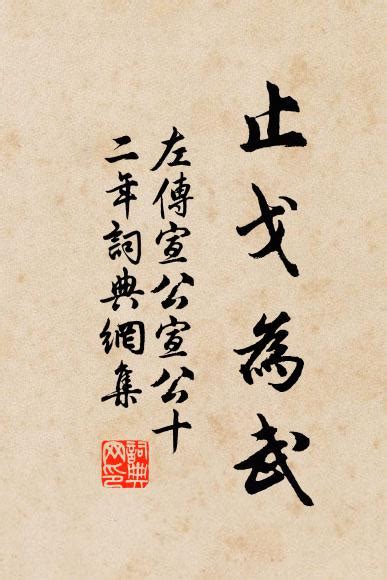 止戈為武
左傳宣公宣公十
二年詞典網集
詞典
网印